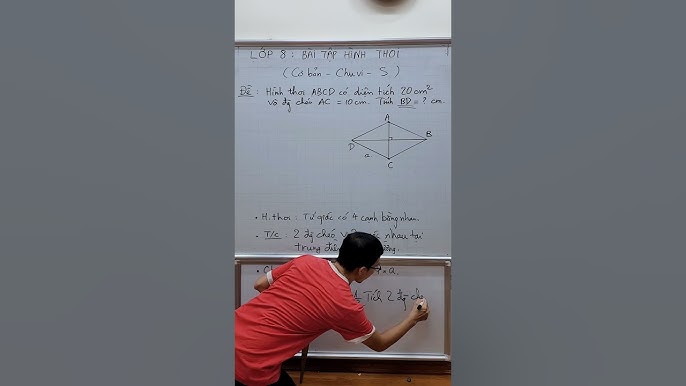 LỚP 8 : BÀI TẬP HÌNH THOI
( Cơ bản - Chu vi - S )
Đề : Hình thoi ABCD có diện tích 20 cm²
và đg chéo AC = 10 cm. Tính BD = ? cm.
A
B
D
a
C
• H. thoi : Tứ giác có 4 cạnh bằng nhau.
• T/c : 2 đg chéo nhau tại
trung điểm
× a.
Tích 2 đg ché